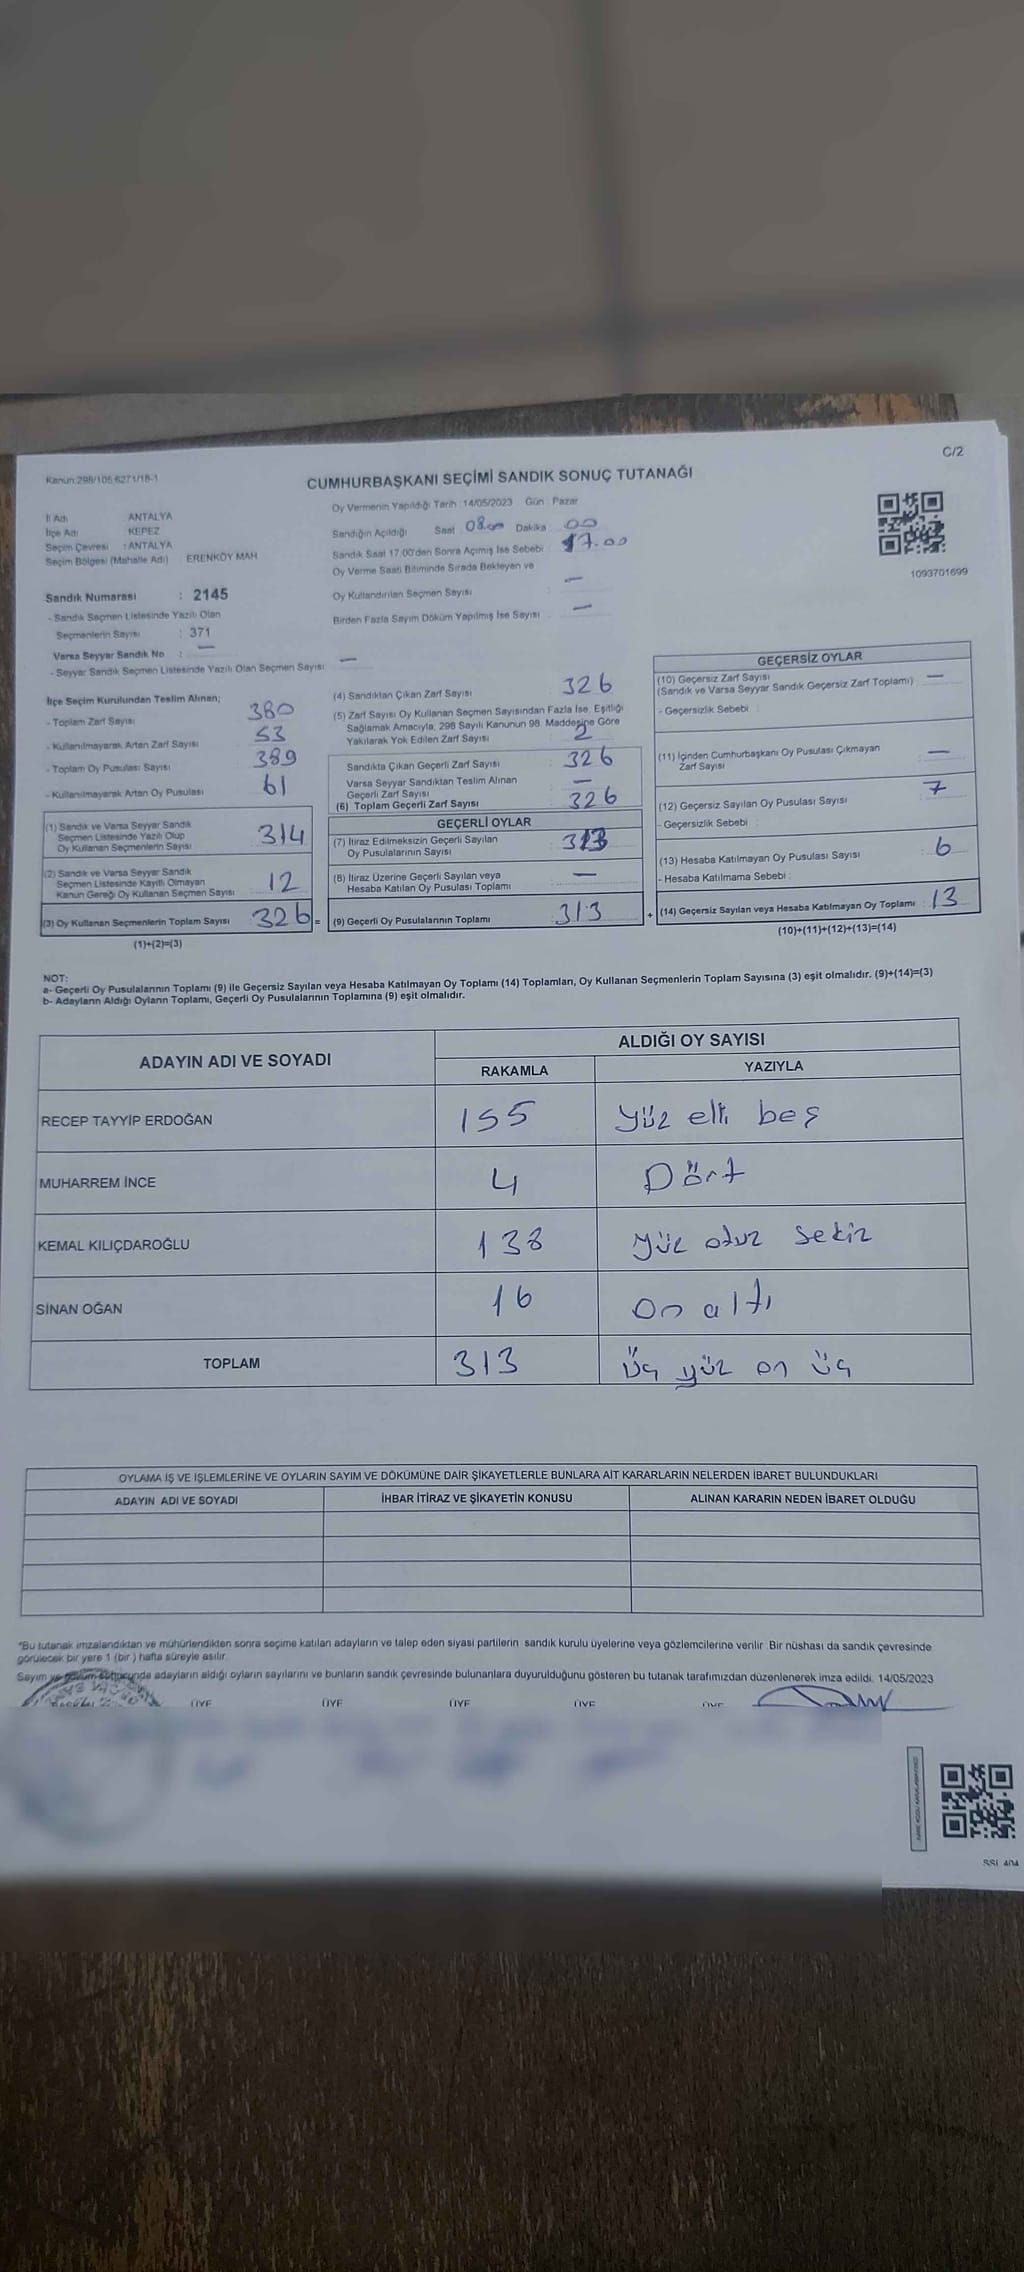 C/2
Kanun:298/105,6271/18-1
CUMHURBAŞKANI SEÇİMİ SANDIK SONUÇ TUTANAĞI
İl Adı ANTALYA
İlçe Adı KEPEZ
Seçim Çevresi : ANTALYA
Seçim Bölgesi (Mahalle Adı) ERENKÖY MAH
Sandık Numarası : 2145
- Sandık Seçmen Listesinde Yazılı Olan
Seçmenlerin Sayısı : 371
Varsa Seyyar Sandık No : —
- Seyyar Sandık Seçmen Listesinde Yazılı Olan Seçmen Sayısı —
Oy Vermenin Yapıldığı Tarih :14/05/2023 Gün : Pazar
Sandığın Açıldığı Saat 08.00 Dakika 00
Sandık Saat 17.00'den Sonra Açılmış İse Sebebi : 17.00
Oy Verme Saati Bitiminde Sırada Bekleyen ve
Oy Kullandırılan Seçmen Sayısı : —
Birden Fazla Sayım Döküm Yapılmış İse Sayısı : —
1093701699
İlçe Seçim Kurulundan Teslim Alınan;
- Toplam Zarf Sayısı 380
- Kullanılmayarak Artan Zarf Sayısı 53
- Toplam Oy Pusulası Sayısı 389
- Kullanılmayarak Artan Oy Pusulası 61
(1) Sandık ve Varsa Seyyar Sandık
Seçmen Listesinde Yazılı Olup
Oy Kullanan Seçmenlerin Sayısı 314
(2) Sandık ve Varsa Seyyar Sandık
Seçmen Listesinde Kayıtlı Olmayan
Kanun Gereği Oy Kullanan Seçmen Sayısı 12
(3) Oy Kullanan Seçmenlerin Toplam Sayısı 326 =
(1)+(2)=(3)
(4) Sandıktan Çıkan Zarf Sayısı : 326
(5) Zarf Sayısı Oy Kullanan Seçmen Sayısından Fazla İse, Eşitliği
Sağlamak Amacıyla, 298 Sayılı Kanunun 98. Maddesine Göre
Yakılarak Yok Edilen Zarf Sayısı : 2
Sandıkta Çıkan Geçerli Zarf Sayısı : 326
Varsa Seyyar Sandıktan Teslim Alınan
Geçerli Zarf Sayısı : —
(6) Toplam Geçerli Zarf Sayısı : 326
GEÇERLİ OYLAR
(7) İtiraz Edilmeksizin Geçerli Sayılan
Oy Pusulalarının Sayısı : 313
(8) İtiraz Üzerine Geçerli Sayılan veya
Hesaba Katılan Oy Pusulası Toplamı : —
(9) Geçerli Oy Pusulalarının Toplamı : 313 +
GEÇERSİZ OYLAR
(10) Geçersiz Zarf Sayısı
(Sandık ve Varsa Seyyar Sandık Geçersiz Zarf Toplamı) —
- Geçersizlik Sebebi :
(11) İçinden Cumhurbaşkanı Oy Pusulası Çıkmayan
Zarf Sayısı : —
(12) Geçersiz Sayılan Oy Pusulası Sayısı : 7
- Geçersizlik Sebebi :
(13) Hesaba Katılmayan Oy Pusulası Sayısı : 6
- Hesaba Katılmama Sebebi :
(14) Geçersiz Sayılan veya Hesaba Katılmayan Oy Toplamı : 13
(10)+(11)+(12)+(13)=(14)
NOT:
a- Geçerli Oy Pusulalarının Toplamı (9) ile Geçersiz Sayılan veya Hesaba Katılmayan Oy Toplamı (14) Toplamları, Oy Kullanan Seçmenlerin Toplam Sayısına (3) eşit olmalıdır. (9)+(14)=(3)
b- Adayların Aldığı Oyların Toplamı, Geçerli Oy Pusulalarının Toplamına (9) eşit olmalıdır.
ADAYIN ADI VE SOYADI ALDIĞI OY SAYISI
RAKAMLA YAZIYLA
RECEP TAYYİP ERDOĞAN 155 Yüz elli beş
MUHARREM İNCE 4 Dört
KEMAL KILIÇDAROĞLU 138 Yüz otuz sekiz
SİNAN OĞAN 16 On altı
TOPLAM 313 Üç yüz on üç
OYLAMA İŞ VE İŞLEMLERİNE VE OYLARIN SAYIM VE DÖKÜMÜNE DAİR ŞİKAYETLERLE BUNLARA AİT KARARLARIN NELERDEN İBARET BULUNDUKLARI
ADAYIN ADI VE SOYADI İHBAR İTİRAZ VE ŞİKAYETİN KONUSU ALINAN KARARIN NEDEN İBARET OLDUĞU
*Bu tutanak imzalandıktan ve mühürlendikten sonra seçime katılan adayların ve talep eden siyasi partilerin sandık kurulu üyelerine veya gözlemcilerine verilir .Bir nüshası da sandık çevresinde
görülecek bir yere 1 (bir ) hafta süreyle asılır.
Sayım ve döküm sonucunda adayların aldığı oyların sayılarını ve bunların sandık çevresinde bulunanlara duyurulduğunu gösteren bu tutanak tarafımızdan düzenlenerek imza edildi. 14/05/2023
ÜYE ÜYE ÜYE ÜYE ÜYE
SSI 404